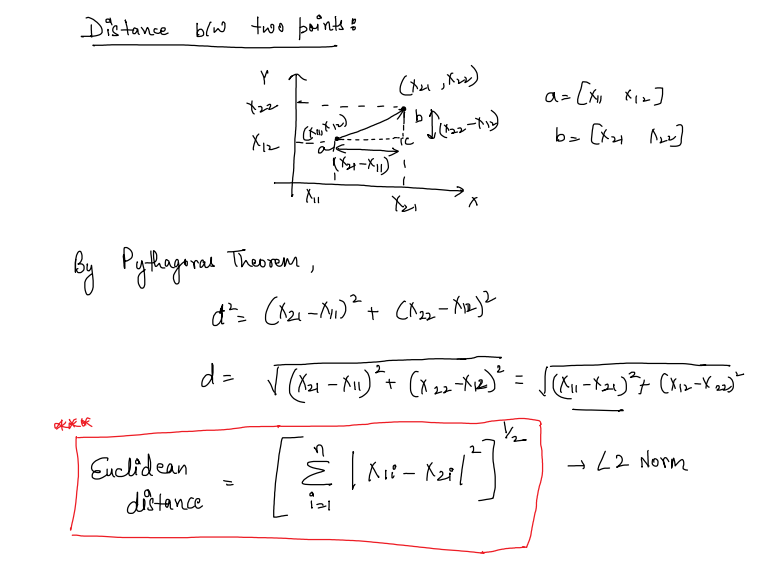 Distance b/w two points:
Y
(x21, x22)
x22
a = [x11 x12]
(x11, x12)
b
(x22 - x12)
x12
a
c
b = [x21 x22]
(x21 - x11)
x11
x21
x
By Pythagoras Theorem,
d² = (x21 - x11)² + (x22 - x12)²
d = √((x21 - x11)² + (x22 - x12)²) = √((x11 - x21)² + (x12 - x22)²)
***
Euclidean distance = [ n Σ i=1 | x1i - x2i |² ]^1/2 → L2 Norm